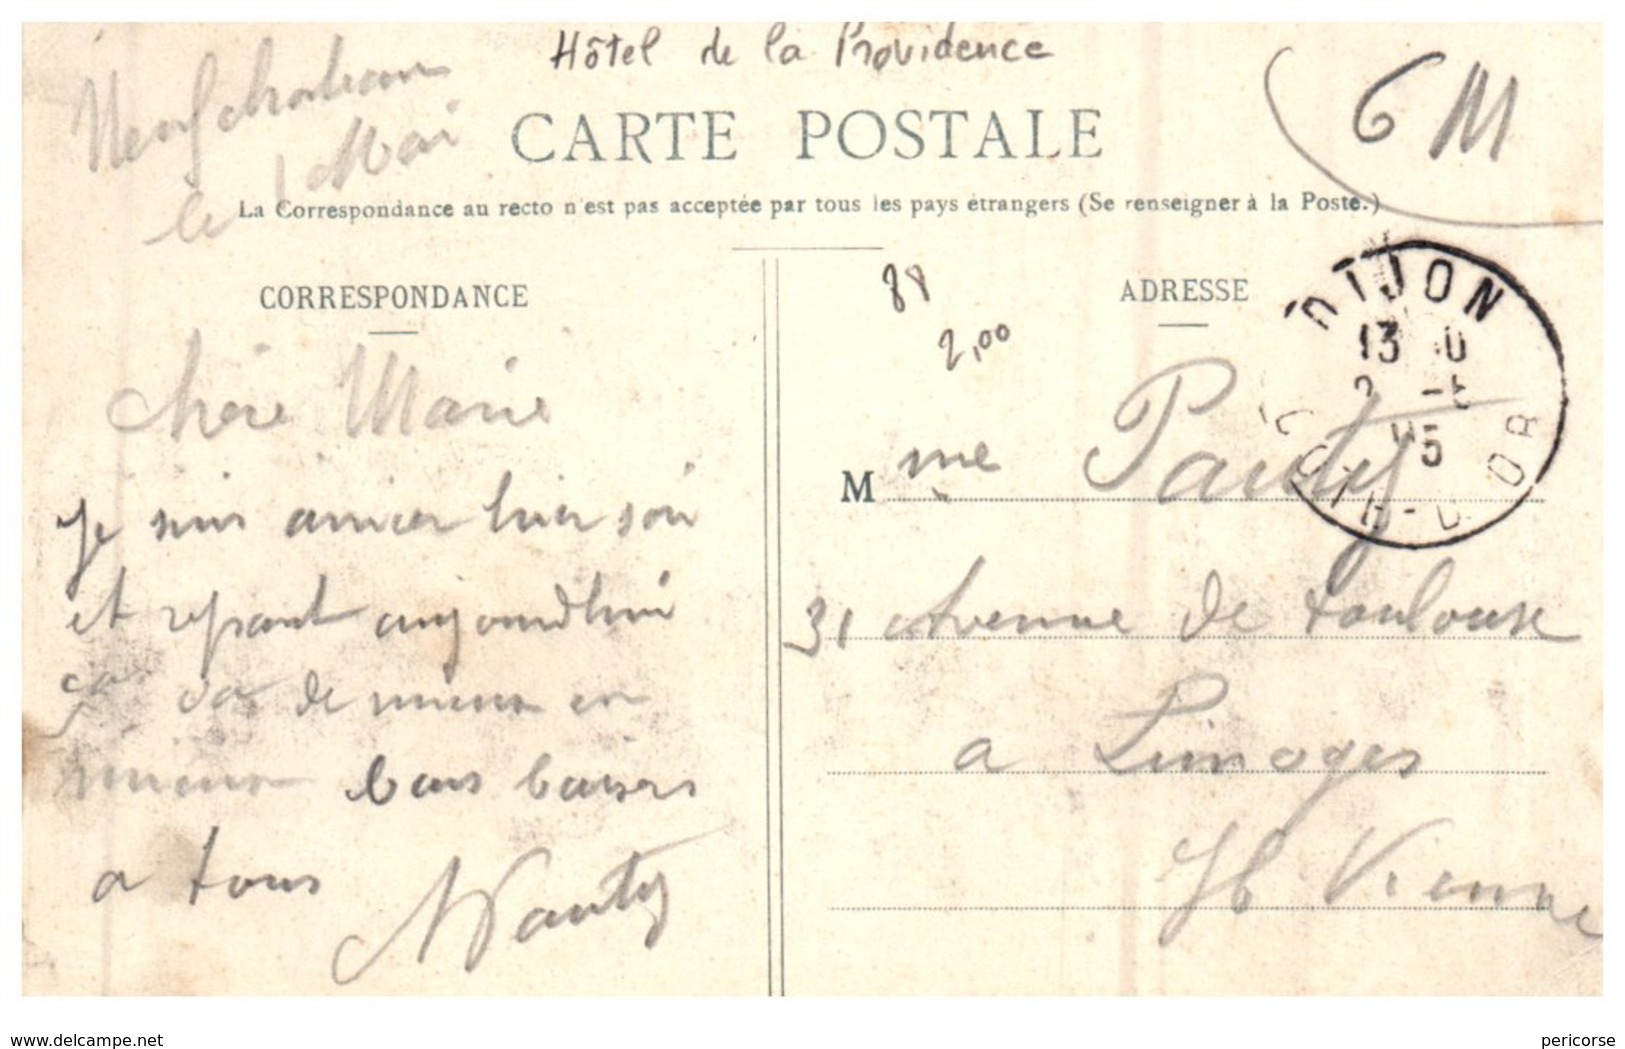 Hôtel de la Providence
6 M
Neufchateau
le 1 Mai
CARTE POSTALE
La Correspondance au recto n'est pas acceptée par tous les pays étrangers (Se renseigner à la Poste.)
CORRESPONDANCE
chère Marie
je suis arriver hier soir
et repart aujourdhui
ça va de mieux en
mieux bons baisers
a tous
Pauty
88
2,00
ADRESSE
DIJON
13
5
COTE-D'OR
M me Pauty
31 Avenue de toulouse
a Limoges
Hte Vienne
www.delcampe.net
pericorse